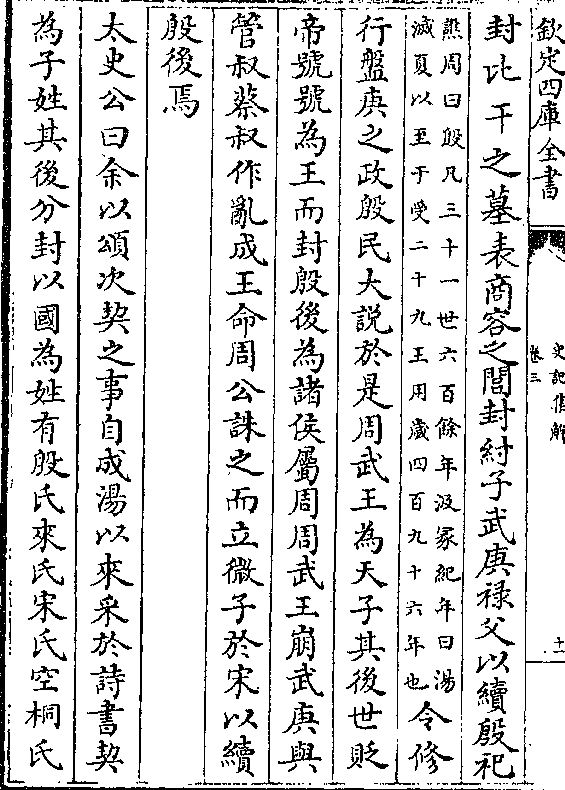 欽定四庫全書
史記集解
卷三
十一
封比干之墓表商容之閭封紂子武庚祿父以續殷祀
譙周曰殷凡三十一世六百餘年汲冢紀年曰湯
滅夏以至于受二十九王用歲四百九十六年也
令修
行盤庚之政殷民大說於是周武王為天子其後世貶
帝號號為王而封殷後為諸侯屬周周武王崩武庚與
管叔蔡叔作亂成王命周公誅之而立微子於宋以續
殷後焉
太史公曰余以頌次契之事自成湯以來采於詩書契
為子姓其後分封以國為姓有殷氏來氏宋氏空桐氏